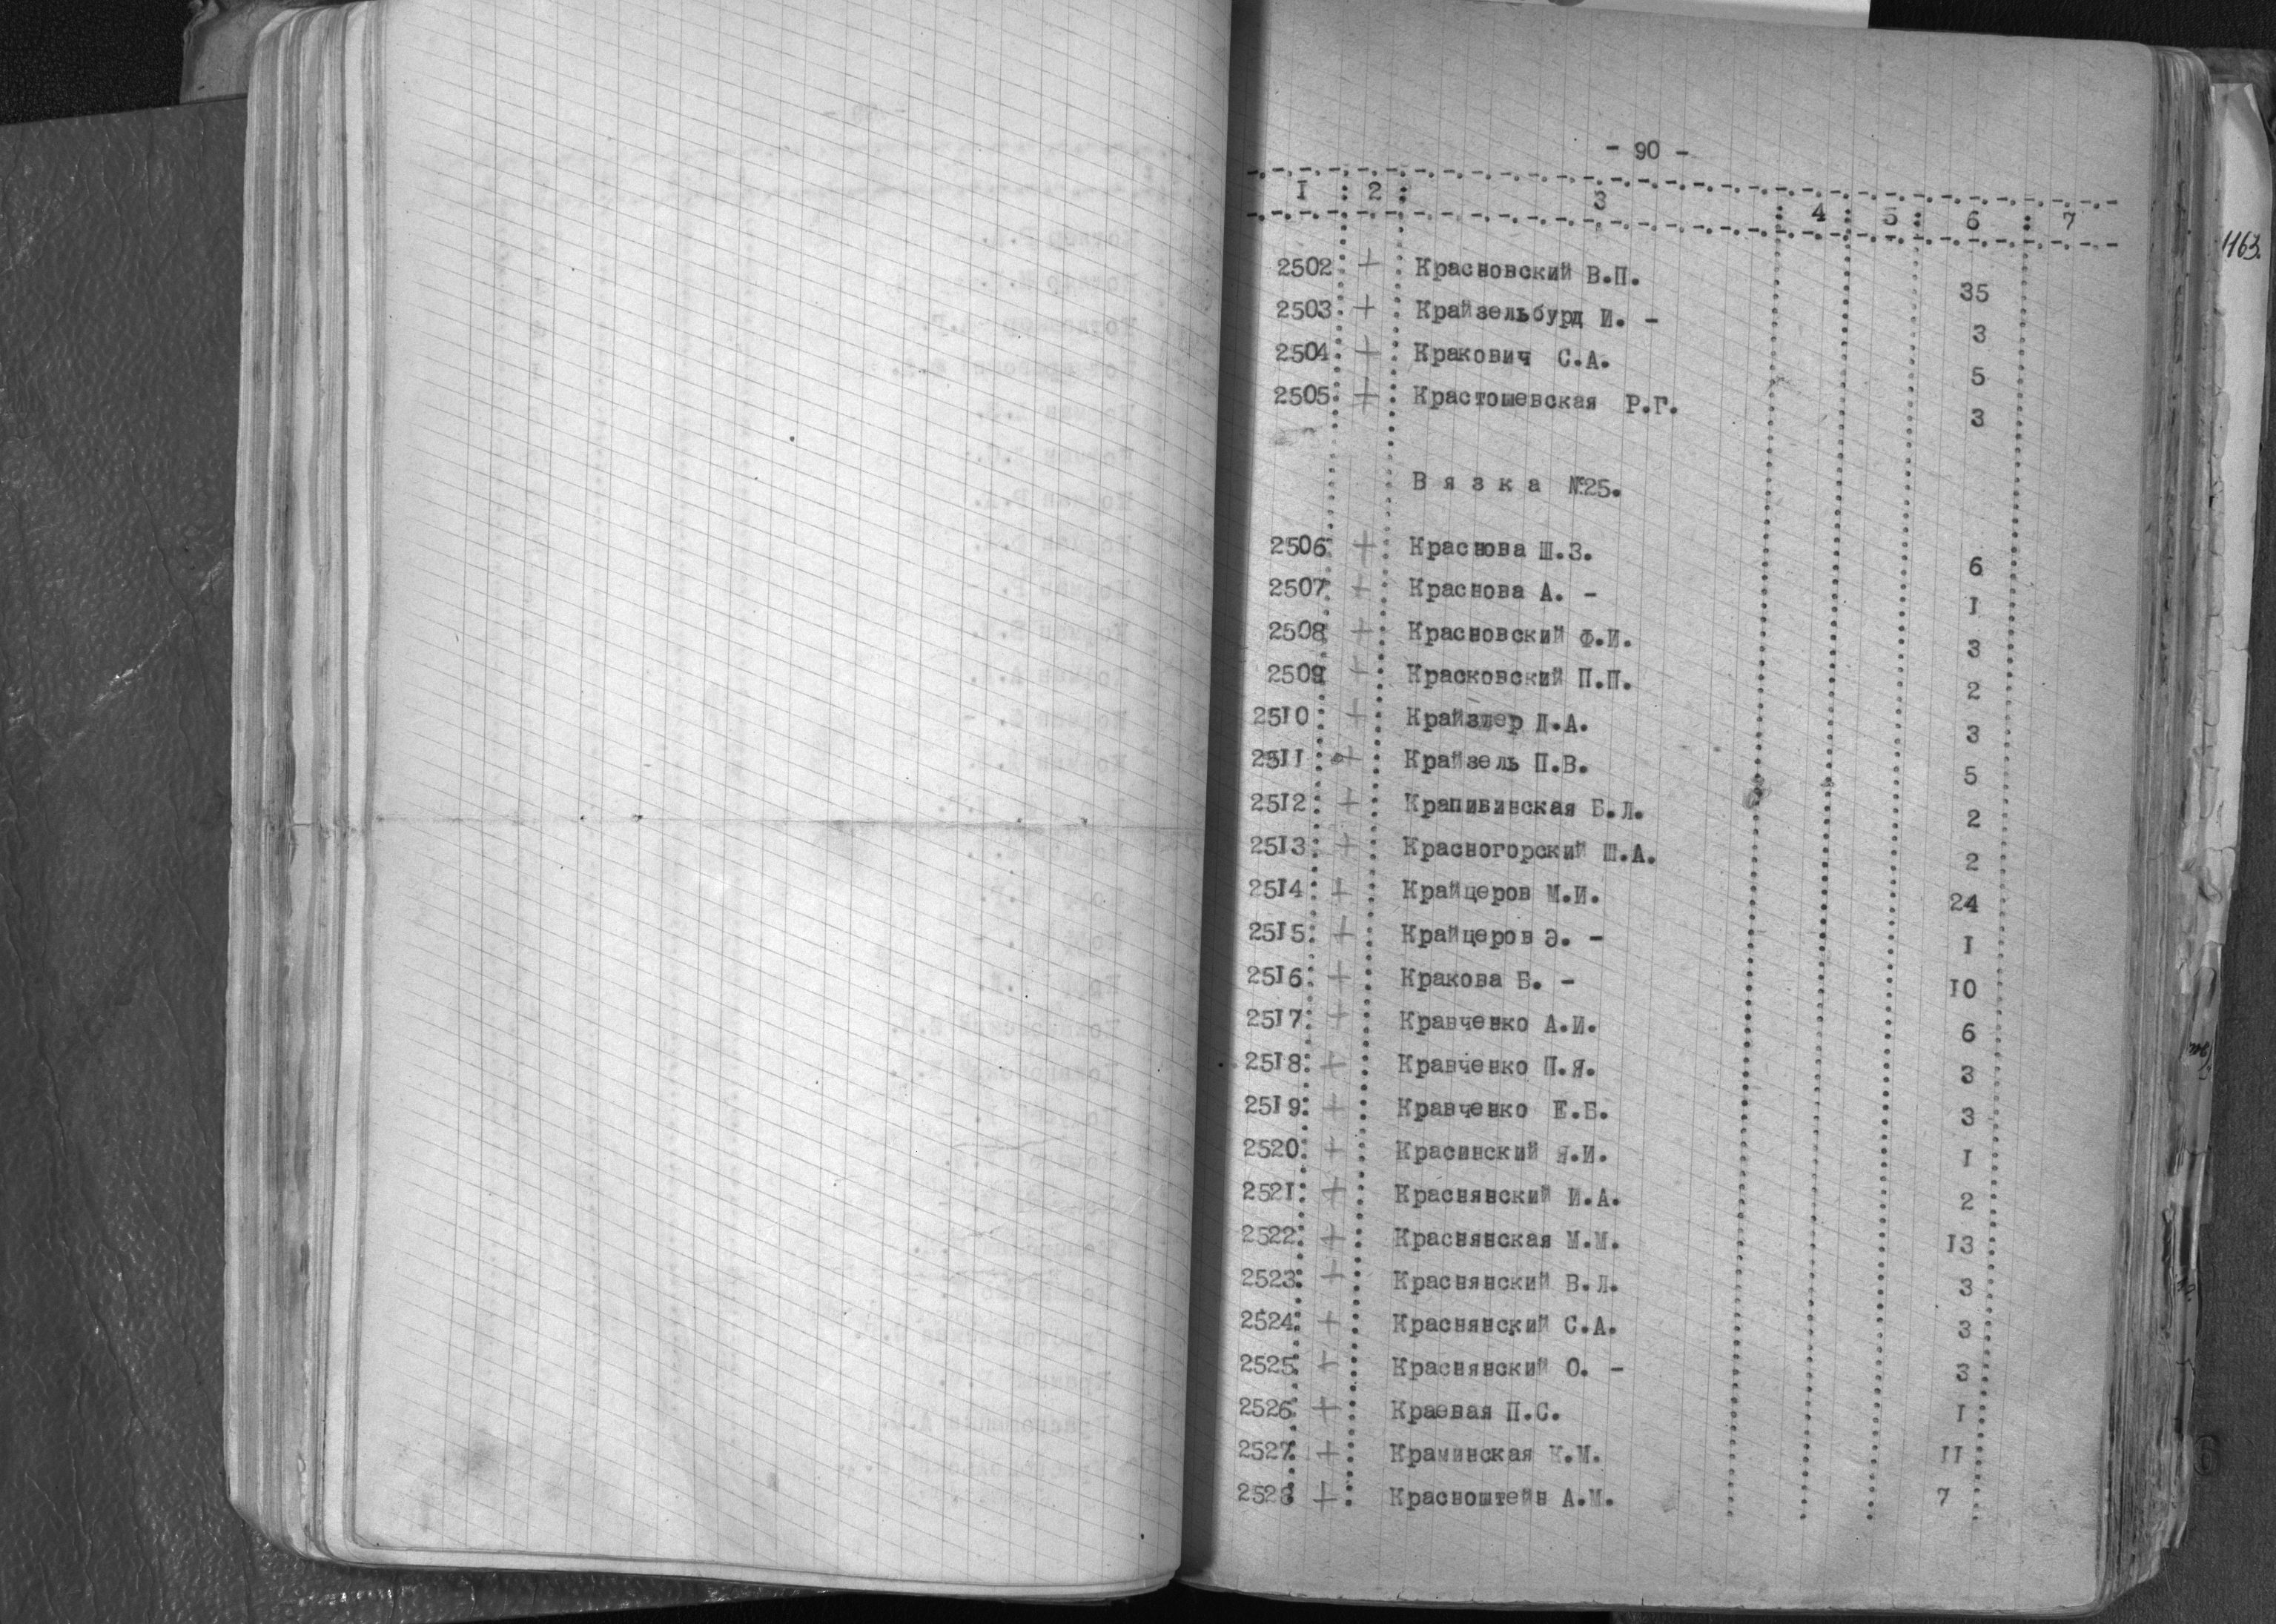 - 90 -
I : 2 : 3 : 4 : 5 : 6 : 7
2502 + Красновский В.П. 35
2503 + Крайзельбурд И. - 3
2504 + Кракович С.А. 5
2505 + Крастошевская Р.Г. 3
Вязка №25.
2506 + Краснова Ш.З. 6
2507 + Краснова А. - I
2508 + Красновский Ф.И. 3
2509 + Красковский П.П. 2
25I0 + Крайзлер Д.А. 3
25II + Крайзель П.В. 5
25I2 + Крапивинская Б.Л. 2
25I3 + Красногорский Ш.А. 2
25I4 + Крайцеров М.И. 24
25I5 + Крайцеров Э. - I
25I6 + Кракова Б. - I0
25I7 + Кравченко А.И. 6
25I8 + Кравченко П.Я. 3
25I9 + Кравченко Е.Б. 3
2520 + Красинский Я.И. I
252I + Краснянский И.А. 2
2522 + Краснянская М.М. I3
2523 + Краснянский В.Л. 3
2524 + Краснянский С.А. 3
2525 + Краснянский О. - 3
2526 + Краевая П.С. I
2527 + Краминская К.М. II
2528 + Красноштейн А.М. 7
1163.